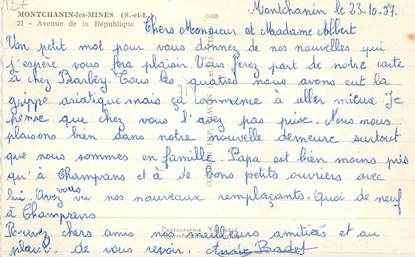 MONTCHANIN-les-MINES (S.-et-L.)
21 - Avenue de la République
Montchanin. le 23.10.57.
Chers Monsieur et Madame Albert
Un petit mot pour vous donnez de nos nouvelles qui
j'espère vous fera plaisir. Vous ferez part de notre carte
à chez Barbey. Tous les quatres nous avons eut la
grippe asiatique mais ça commence à aller mieux Je
pense que chez vous l'avez pas prise. Nous nous
plaisons bien dans notre nouvelle demeure surtout
que nous sommes en famille. Papa est bien moins pris
qu'à Champvans et à de bons petits ouviers avec
lui. Avez vous vu nos nouveaux remplaçants. Quoi de neuf
à Champvans
Recevez chers amis nos meilleurs amitiées et au
plaisir de vous revoir. Badet